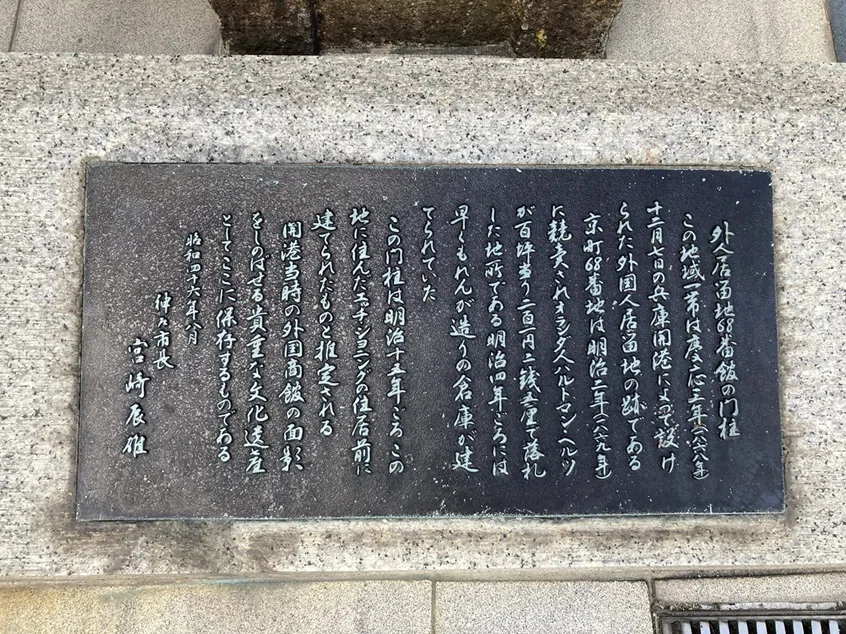 外人居留地68番館の門柱
この地域一帯は慶応三年(一八六八年)
十二月七日の兵庫開港によって設け
られた外国人居留地の跡である
京町68番地は明治二年(一八六九年)
に競売されオランダ人ハルトマン・ヘルツ
が百坪当り二百一円二銭五厘で落札
した地所である明治四年ごろには
早くもれんが造りの倉庫が建
てられていた
この門柱は明治十五年ごろこの
地に住んだエッチ・ジョニングの住居前に
建てられたものと推定される
開港当時の外国商館の面影
をしのばせる貴重な文化遺産
としてここに保存するものである
昭和四十六年八月
神戸市長
宮崎辰雄